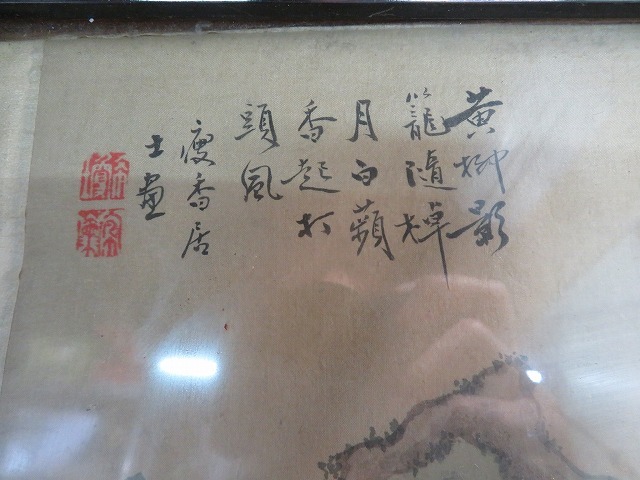 黄柳影
籠隨棹
月白蘋
香起打
頭風
瘦香居
士畫